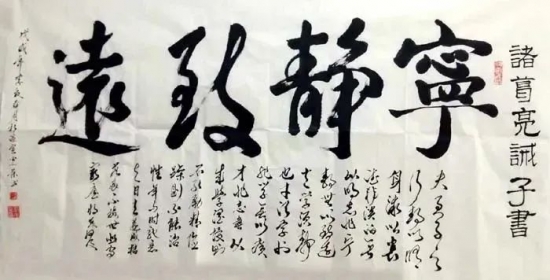 諸葛亮誡子書
寧靜致遠
夫君子之
行靜以修
身儉以養
德非澹泊無
以明志非寧
靜無以致遠
夫學須靜
也才須學也
非學無以廣
才非志無以
成學慢則
不能勵精險
躁則不能治
性年與時馳意
與日去遂成枯
落多不接世悲守
窮廬將復何及
戊戌年